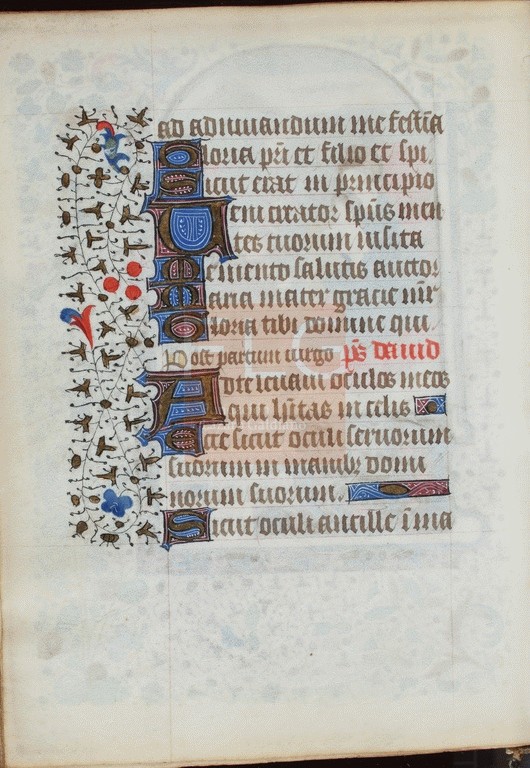 ad adiuuandum me festīa
Gloria pr̄i et filio et spi.
Sicut erat in principio
Veni creator spūs men
tes tuorum uisita
Memento salutis auctor
Maria mater gracie mīr
Gloria tibi domine qui
Post partum uirgo pš dauid
Ad te leuaui oculos meos
qui h̄itas in celis
Ecce sicut oculi seruorum
suorum in manibꝫ domi
norum suorum.
Sicut oculi ancille ī ma